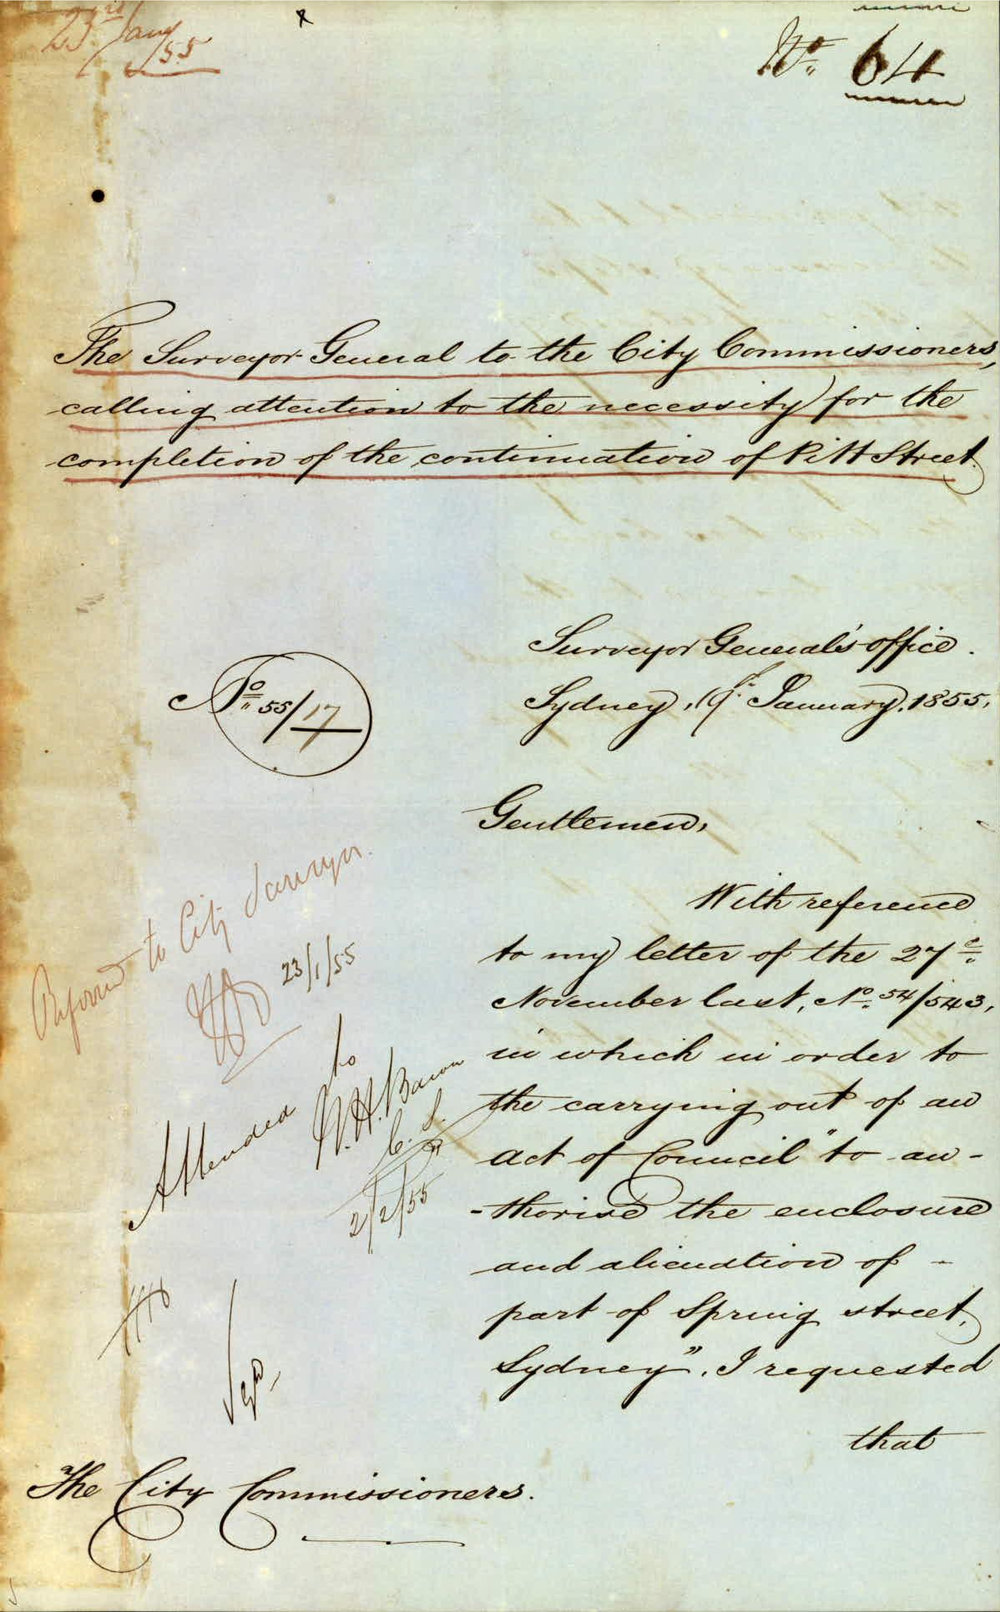 23rd Jany
/55
No. 64
The Surveyor General to the City Commissioners,
calling attention to the necessity for the
completion of the continuation of Pitt Street.
Surveyor General's office.
No. 55/17
Sydney, 19th January, 1855,
Gentlemen,
With reference
to my letter of the 27th
November last, No. 54/543,
in which in order to
the carrying out of an
act of Council "to au-
-thorise the enclosure
and alienation of -
part of Spring street,
Sydney", I requested
that
Referred to City Surveyor.
23/1/55
Attended to
W.H. Baron
C.S.
2/2/55
The City Commissioners.